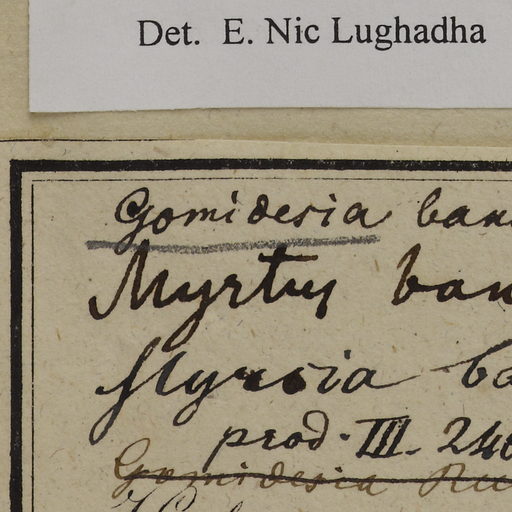 Det. E. Nic Lughadha
Gomidesia ban
Myrtus ban
Myrcia ba
prod. III. 246
Gomidesia